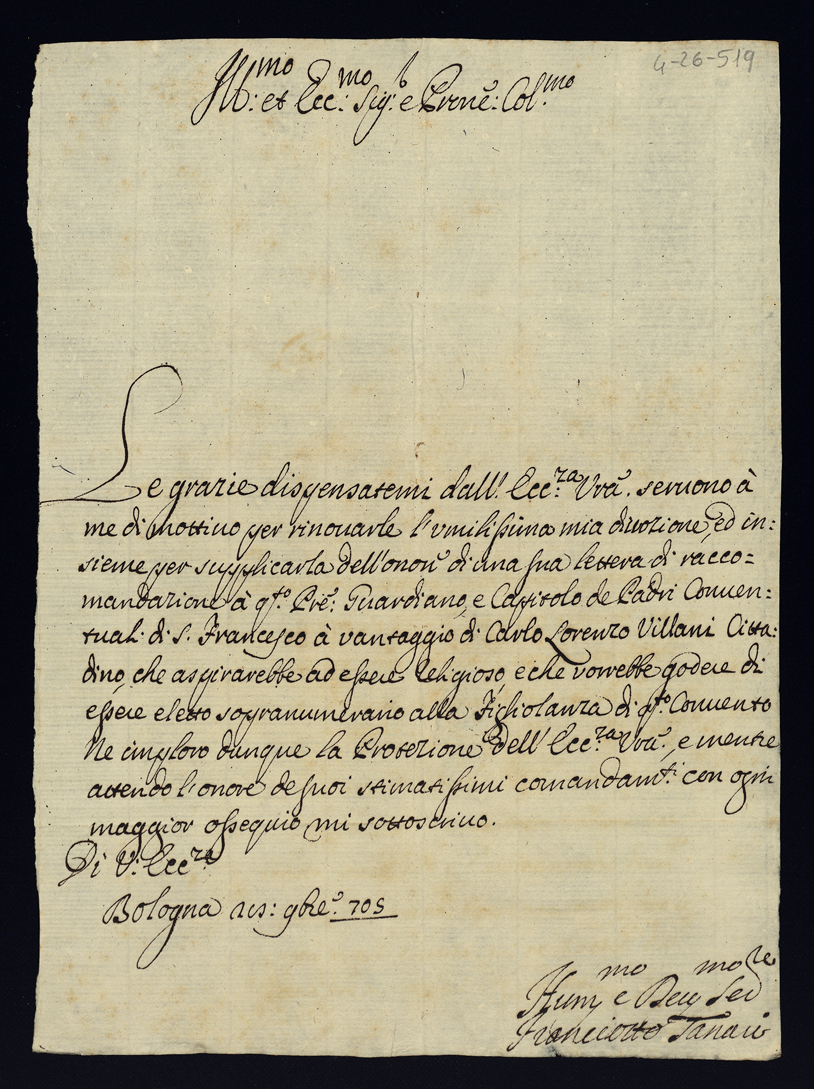 4-26-519
Ill:mo et Ecc:mo Sig:r e Prone: Col:mo
Le grazie dispensatemi dall'. Ecc:za Vrã. seruono à
me di mottiuo per rinouarle l'vmilissima mia diuozione, ed in:
sieme per supplicarla dell'onorẽ di una sua lettera di racco=
mandazione à q.to Prẽ: Guardiano, e Capitolo de Padri Conuen=
tual: di S. Francesco à vantaggio di Carlo Lorenzo Villani Citta:
dino, che aspirarebbe ad essere Religioso, e che vorrebbe godere di
essere eletto sopranumerario alla Figliolanza di q.to Conuento
Ne imploro dunque la Protezione dell' Ecc:za Vrã., e mentre
attendo l'onore de suoi stimatissimi comandam:ti con ogni
maggior ossequio mi sottoscriuo.
Di V: Ecc:za
Bologna 9bre 705
Hum:mo e Deu:mo Se:re
Franciotto Tanari